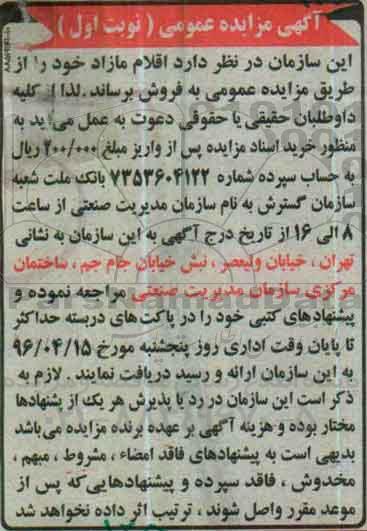 آگهی مزایده عمومی ( نوبت اول )
این سازمان در نظر دارد اقلام مازاد خود را از
طریق مزایده عمومی به فروش برساند . لذا از کلیه
داوطلبان حقیقی یا حقوقی دعوت به عمل می آید به
منظور خرید اسناد مزایده پس از واریز مبلغ ۲۰۰/۰۰۰ ریال
به حساب سپرده شماره ۷۳۵۳۶۰۴۱۲۲ بانک ملت شعبه
سازمان گسترش به نام سازمان مدیریت صنعتی از ساعت
۸ الی ۱۶ از تاریخ درج آگهی به این سازمان به نشانی
تهران ، خیابان ولیعصر ، نبش خیابان جام جم ، ساختمان
مرکزی سازمان مدیریت صنعتی مراجعه نموده و
پیشنهادهای کتبی خود را در پاکت های دربسته حداکثر
تا پایان وقت اداری روز پنجشنبه مورخ ۹۶/۰۴/۱۵
به این سازمان ارائه و رسید دریافت نمایند . لازم به
ذکر است این سازمان در رد یا پذیرش هر یک از پشنهادها
مختار بوده و هزینه آگهی بر عهده برنده مزایده می باشد
بدیهی است به پیشنهادهای فاقد امضاء ، مشروط ، مبهم ،
مخدوش ، فاقد سپرده و پیشنهادهایی که پس از
موعد مقرر واصل شوند ، ترتیب اثر داده نخواهد شد